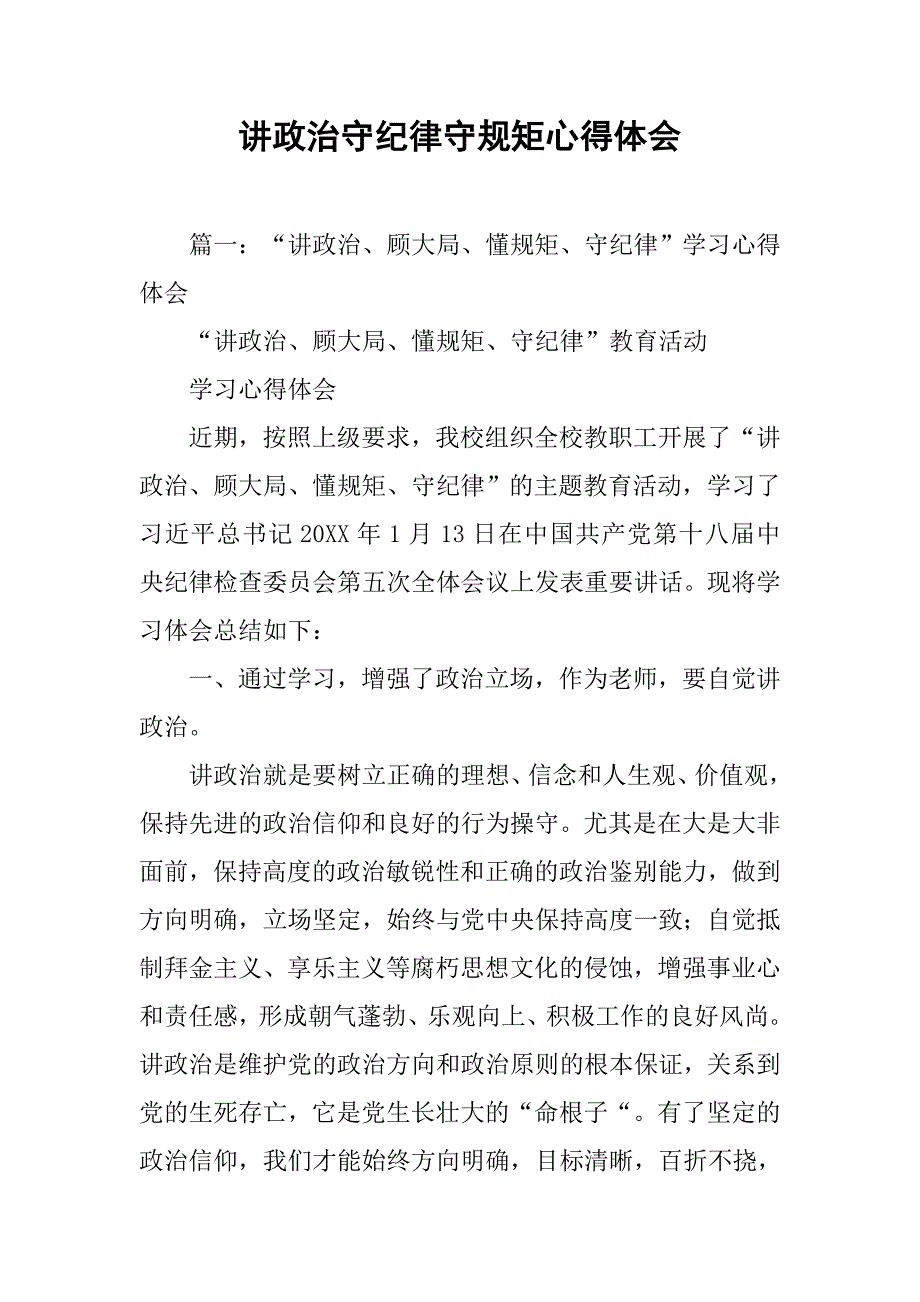 讲政治守纪律守规矩心得体会
篇一：“讲政治、顾大局、懂规矩、守纪律”学习心得
体会
“讲政治、顾大局、懂规矩、守纪律”教育活动
学习心得体会
近期，按照上级要求，我校组织全校教职工开展了“讲
政治、顾大局、懂规矩、守纪律”的主题教育活动，学习了
习近平总书记 20XX 年 1 月 13 日在中国共产党第十八届中
央纪律检查委员会第五次全体会议上发表重要讲话。现将学
习体会总结如下：
一、通过学习，增强了政治立场，作为老师，要自觉讲
政治。
讲政治就是要树立正确的理想、信念和人生观、价值观，
保持先进的政治信仰和良好的行为操守。尤其是在大是大非
面前，保持高度的政治敏锐性和正确的政治鉴别能力，做到
方向明确，立场坚定，始终与党中央保持高度一致；自觉抵
制拜金主义、享乐主义等腐朽思想文化的侵蚀，增强事业心
和责任感，形成朝气蓬勃、乐观向上、积极工作的良好风尚。
讲政治是维护党的政治方向和政治原则的根本保证，关系到
党的生死存亡，它是党生长壮大的“命根子“。有了坚定的
政治信仰，我们才能始终方向明确，目标清晰，百折不挠，